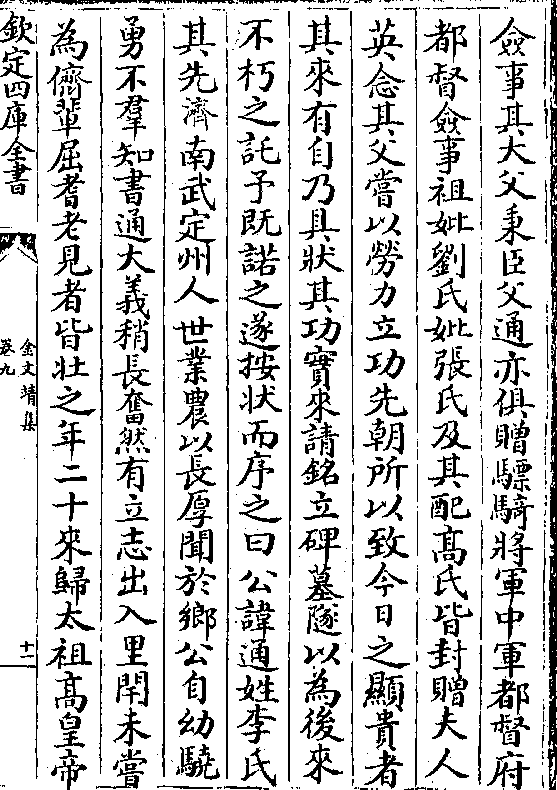 僉事其大父秉臣父通亦俱贈驃騎將軍中軍都督府
都督僉事祖妣劉氏妣張氏及其配髙氏皆封贈夫人
英念其父嘗以勞力立功先朝所以致今日之顯貴者
其來有自乃具狀其功實來請銘立碑墓隧以為後來
不朽之託予既諾之遂按狀而序之曰公諱通姓李氏
其先濟南武定州人世業農以長厚聞於鄉公自幼驍
勇不羣知書通大義稍長奮然有立志出入里閈未嘗
為儕輩屈耆老見者皆壯之年二十來歸太祖髙皇帝
欽定四庫全書
金文靖集
卷九
十一